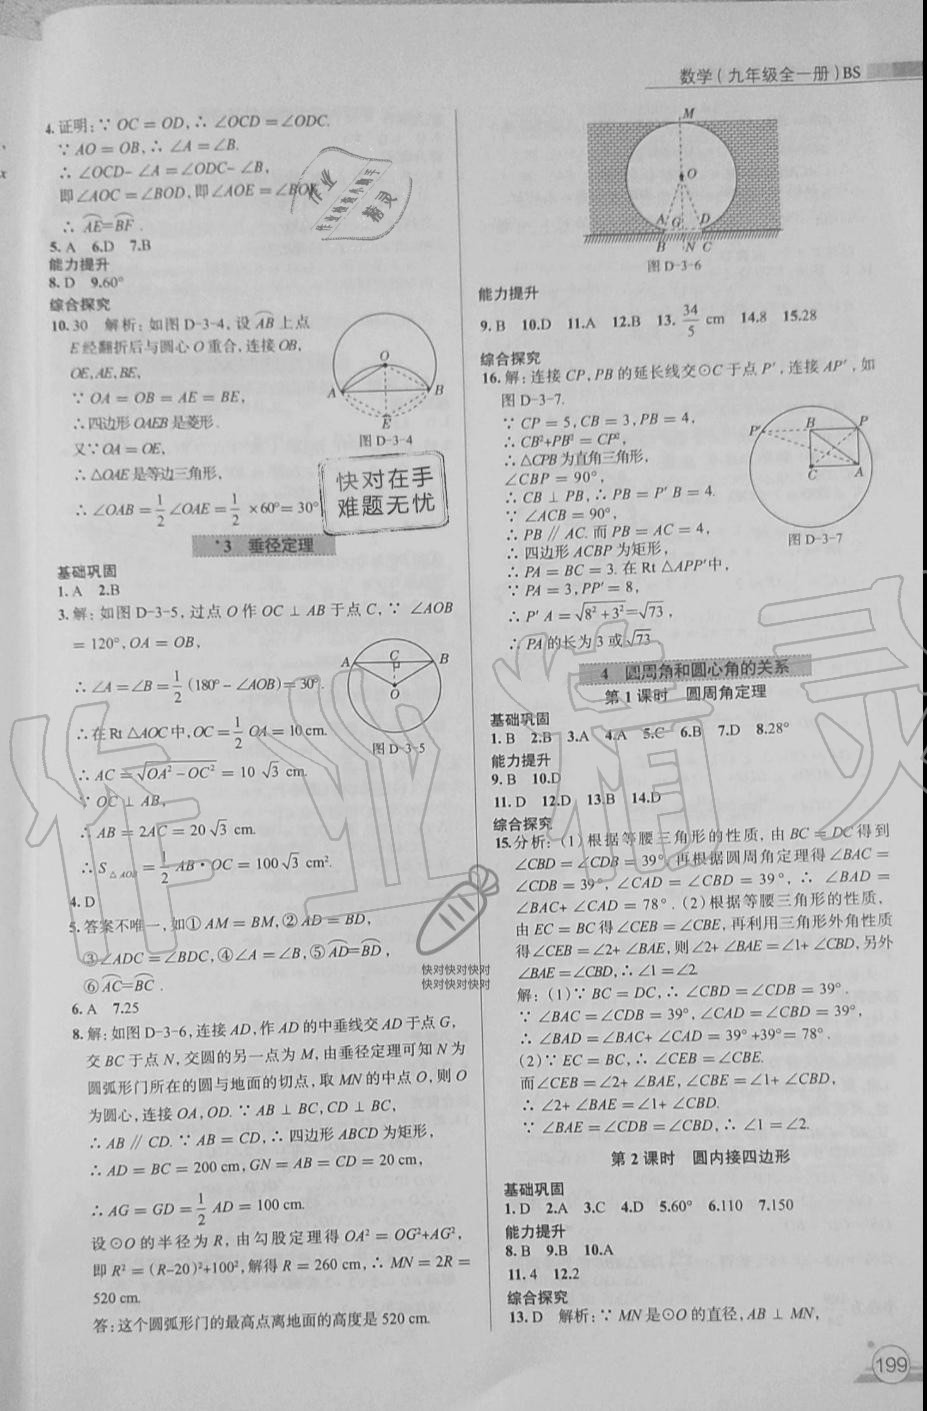 数学(九年级全一册)BS
4.证明:∵ OC = OD,∴ ∠OCD=∠ODC.
∵ AO = OB,∴ ∠A = ∠B.
∴ ∠OCD- ∠A = ∠ODC- ∠B,
即∠AOC = ∠BOD,即∠AOE = ∠BOF.
∴ ⌒AE=⌒BF.
5.A 6.D 7.B
能力提升
8.D 9.60°
综合探究
10.30 解析:如图 D-3-4,设⌒AB上点
E经翻折后与圆心 O 重合,连接OB,
OE,AE,BE,
∵ OA = OB = AE = BE,
∴四边形 OAEB 是菱形.
又∵OA = OE,
∴△OAE 是等边三角形,
∴ ∠OAB = 1/2 ∠OAE = 1/2 ×60°= 30°
O
A
B
E
图 D-3-4
*3 垂径定理
基础巩固
1.A 2.B
3.解:如图 D-3-5,过点 O 作 OC ⊥ AB 于点 C,∵ ∠AOB
= 120°,OA = OB,
∴ ∠A = ∠B = 1/2 (180° - ∠AOB) = 30°.
∴在 Rt △AOC 中,OC = 1/2 OA = 10 cm.
∴ AC = √(OA² - OC²) = 10 √3 cm.
∵ OC ⊥ AB,
∴ AB = 2AC = 20 √3 cm.
∴ S△AOB = 1/2 AB·OC = 100 √3 cm².
C
A
B
O
图 D-3-5
4.D
5.答案不唯一,如① AM = BM,② AD = BD,
③∠ADC = ∠BDC,④∠A = ∠B,⑤⌒AD=⌒BD,
⑥⌒AC=⌒BC.
6.A 7.25
8.解:如图 D-3-6,连接 AD,作 AD 的中垂线交 AD 于点 G,
交 BC 于点 N,交圆的另一点为 M,由垂径定理可知 N 为
圆弧形门所在的圆与地面的切点,取 MN 的中点 O,则 O
为圆心,连接 OA,OD. ∵ AB ⊥ BC,CD ⊥ BC,
∴ AB ∥ CD. ∵ AB = CD,∴ 四边形 ABCD 为矩形,
∴ AD = BC = 200 cm,GN = AB = CD = 20 cm,
∴ AG = GD = 1/2 AD = 100 cm.
设⊙O 的半径为 R, 由勾股定理得 OA² = OG²+AG²,
即 R² = (R-20)²+100²,解得 R = 260 cm,∴ MN = 2R =
520 cm.
答:这个圆弧形门的最高点离地面的高度是 520 cm.
M
O
A G D
B N C
图 D-3-6
能力提升
9.B 10.D 11.A 12.B 13. 34/5 cm 14.8 15.28
综合探究
16.解:连接 CP,PB 的延长线交⊙C 于点 P′,连接 AP′,如
图 D-3-7.
∵ CP = 5,CB = 3,PB = 4,
∴ CB²+PB² = CP²,
∴ △CPB 为直角三角形,
∠CBP = 90°,
∴ CB ⊥ PB,∴ PB = P′ B = 4.
∵ ∠ACB = 90°,
∴ PB ∥ AC. 而 PB = AC = 4,
∴ 四边形 ACBP 为矩形,
∴ PA = BC = 3. 在 Rt △APP′中,
∵ PA = 3,PP′ = 8,
∴ P′ A = √(8² + 3²) = √73,
∴ PA 的长为 3 或√73.
P′
B
P
C
A
图 D-3-7
4 圆周角和圆心角的关系
第 1 课时 圆周角定理
基础巩固
1.B 2.B 3.A 4.A 5.C 6.B 7.D 8.28°
能力提升
9.B 10.D
11.D 12.D 13.B 14.D
综合探究
15.分析:(1)根据等腰三角形的性质,由 BC = DC 得到
∠CBD = ∠CDB = 39°,再根据圆周角定理得∠BAC =
∠CDB = 39°,∠CAD = ∠CBD = 39°,∴ ∠BAD =
∠BAC+ ∠CAD = 78°.(2)根据等腰三角形的性质,
由 EC = BC 得∠CEB = ∠CBE,再利用三角形外角性质
得∠CEB = ∠2+ ∠BAE,则∠2+ ∠BAE = ∠1+ ∠CBD,另外
∠BAE = ∠CBD,∴ ∠1 = ∠2.
解:(1)∵ BC = DC,∴ ∠CBD = ∠CDB = 39°.
∵ ∠BAC = ∠CDB = 39°,∠CAD = ∠CBD = 39°,
∴ ∠BAD = ∠BAC+ ∠CAD = 39° +39° = 78°.
(2)∵ EC = BC,∴ ∠CEB = ∠CBE.
而∠CEB = ∠2+ ∠BAE,∠CBE = ∠1+ ∠CBD,
∴ ∠2+ ∠BAE = ∠1+ ∠CBD.
∵ ∠BAE = ∠CDB = ∠CBD,∴ ∠1 = ∠2.
第 2 课时 圆内接四边形
基础巩固
1.D 2.A 3.C 4.D 5.60° 6.110 7.150
能力提升
8.B 9.B 10.A
11.4 12.2
综合探究
13.D 解析:∵ MN 是⊙O 的直径,AB ⊥ MN,
199
快对在手
难题无忧
快对快对快对
快对快对快对
作业
精灵
作业精灵